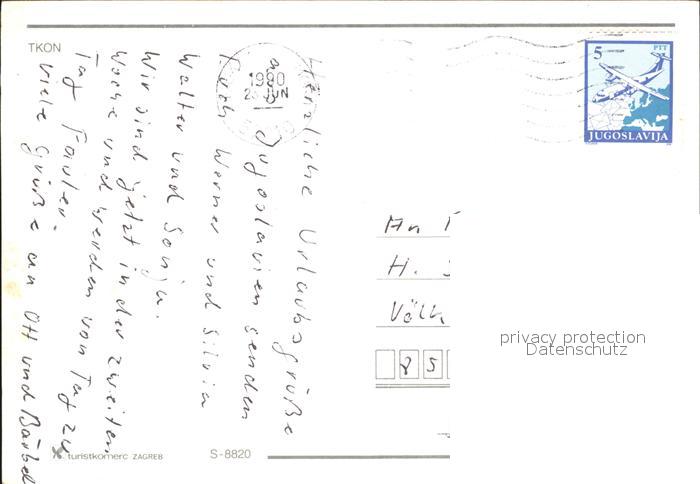 TKON
1990
JUN
5
PTT
JUGOSLAVIJA
Herzliche Urlaubsgrüße
aus Jugoslavien senden
Ruth Werner und Silvia
Walter und Sonja.
Wir sind jetzt in der zweiten
Woche und werden von Tag zu
Tag fauler.
Viele Grüße an Ott und Bärbel
An
H.
Völk
8 5
privacy protection
Datenschutz
turistkomerc ZAGREB
S-8820